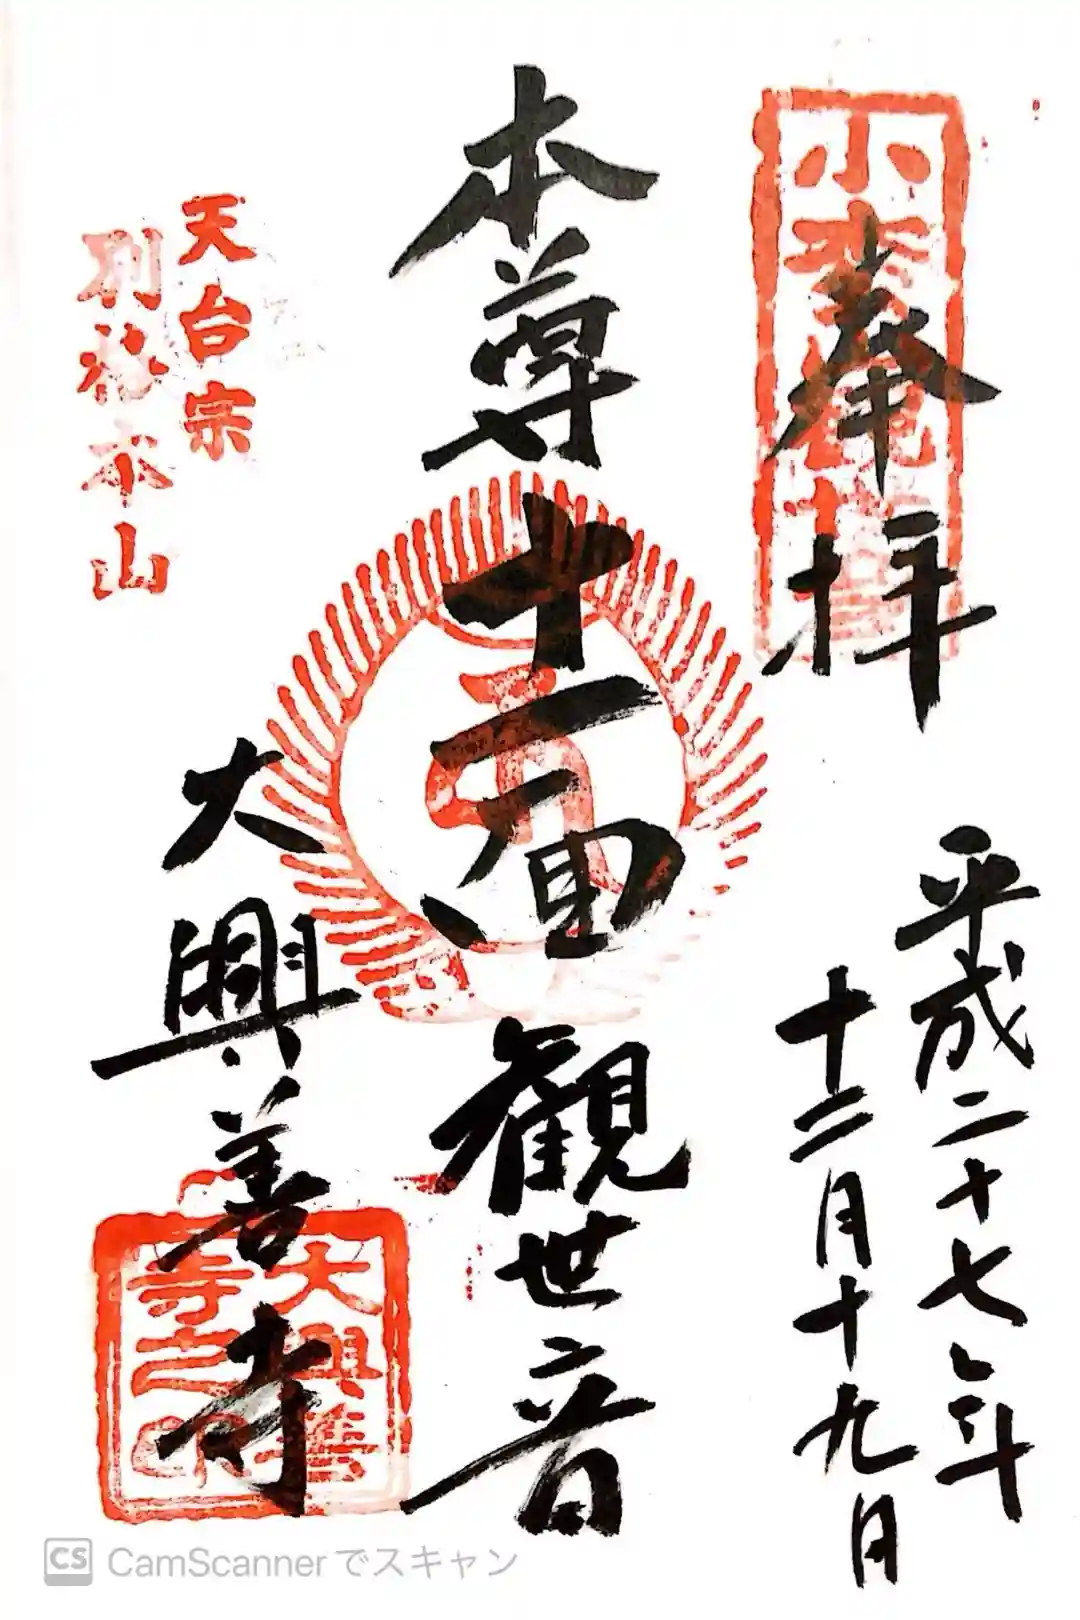 小松観音
奉拝
平成二十七年
十二月十九日
本尊十一面観世音
大興善寺
天台宗
別格本山
大興善
寺之印
CS CamScannerでスキャン